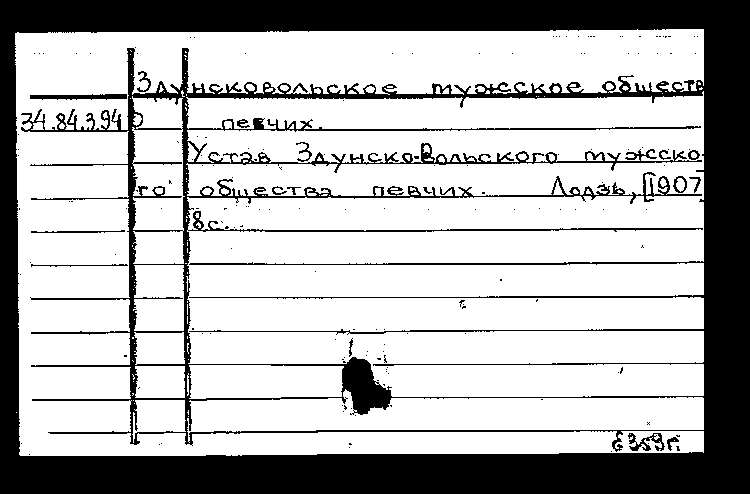 Здунсковольское мужское обществ
34.84.3.94 о певчих.
Устав Здунско-Вольского мужско-
го общества певчих. Лодзь, [1907]
8с.